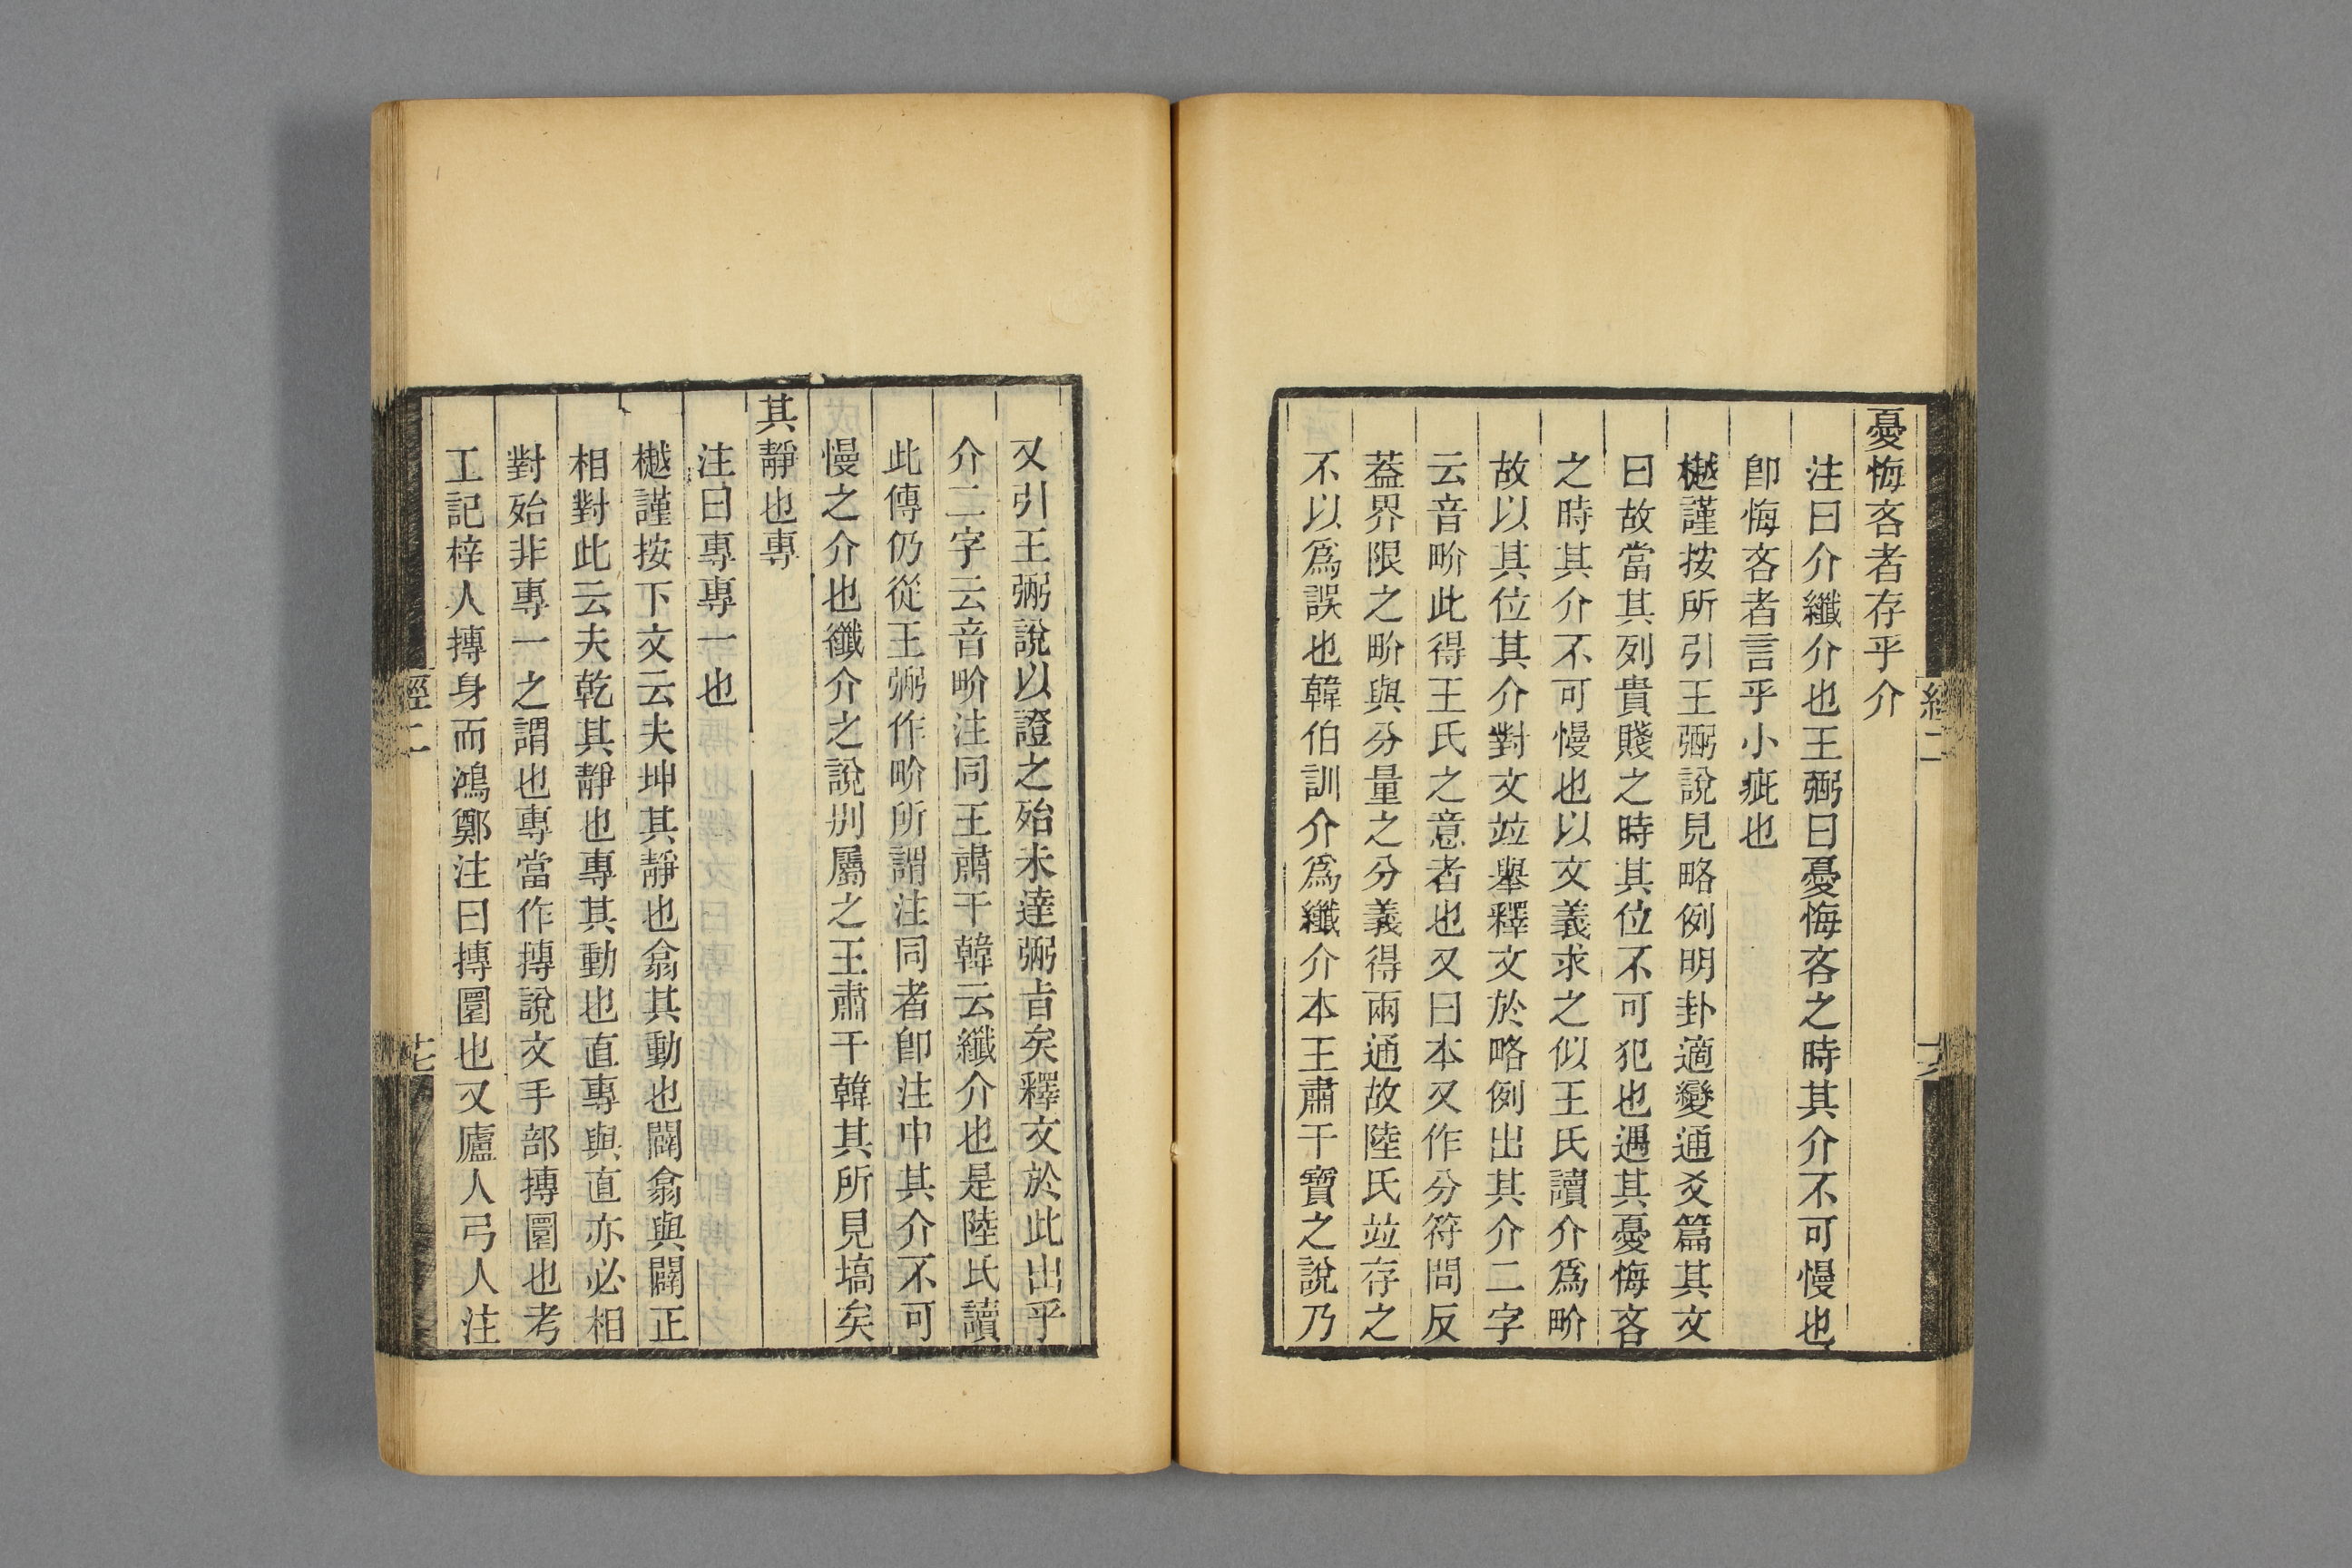 憂悔吝者存乎介
注曰介纖介也王弼曰憂悔吝之時其介不可慢也
卽悔吝者言乎小疵也
樾謹按所引王弼說見略例明卦適變通爻篇其文
曰故當其列貴賤之時其位不可犯也遇其憂悔吝
之時其介不可慢也以文義求之似王氏讀介爲畍
故以其位其介對文竝舉釋文於略例出其介二字
云音畍此得王氏之意者也又曰本又作分符問反
葢界限之畍與分量之分義得兩通故陸氏竝存之
不以爲誤也韓伯訓介爲纖介本王肅干寶之說乃
又引王弼說以證之殆未達弼㫖矣釋文於此出乎
介二字云音畍注同王肅干韓云纖介也是陸氏讀
此傳仍從王弼作畍所謂注同者卽注中其介不可
慢之介也纖介之說別屬之王肅干韓其所見塙矣
其靜也專
注曰專專一也
樾謹按下文云夫坤其靜也翕其動也闢翕與闢正
相對此云夫乾其靜也專其動也直專與直亦必相
對殆非專一之謂也專當作摶說文手部摶圜也考
工記梓人摶身而鴻鄭注曰摶圜也又廬人弓人注
經二